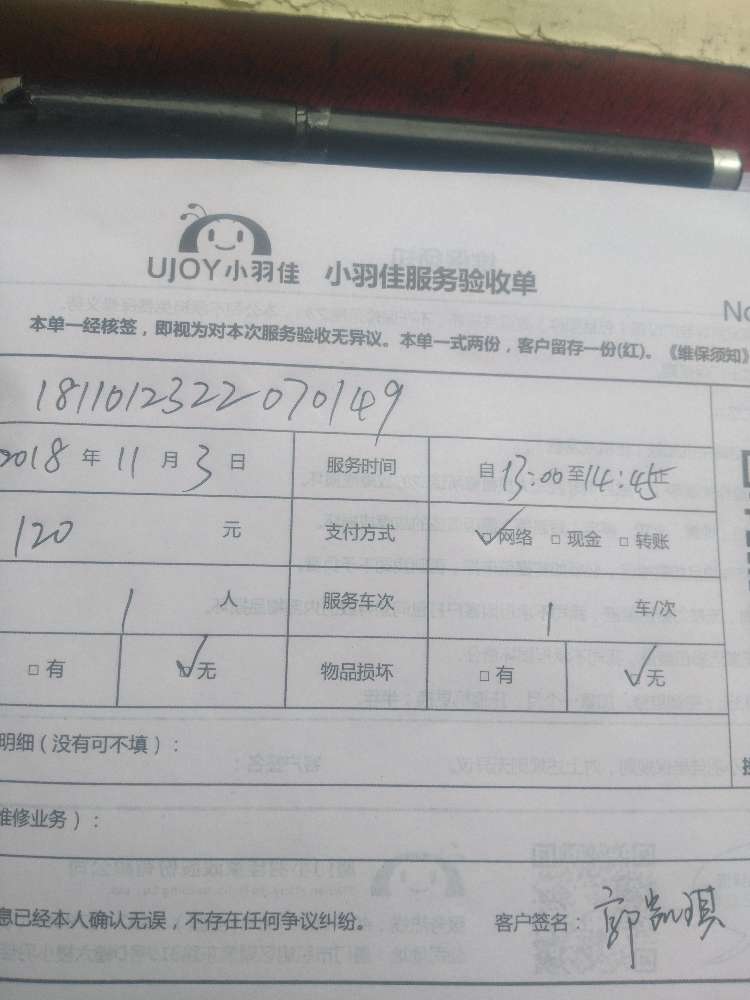 UJOY小羽佳 小羽佳服务验收单
No
本单一经核签，即视为对本次服务验收无异议。本单一式两份，客户留存一份(红)。《维保须知》
1811012322070149
2018 年 11 月 3 日 服务时间 自 13:00 至 14:45 止
120 元 支付方式 ☑网络 □现金 □转账
1 人 服务车次 1 车/次
□有 ☑无 物品损坏 □有 ☑无
明细（没有可不填）：
维修业务）：
息已经本人确认无误，不存在任何争议纠纷。 客户签名：郭凯琪